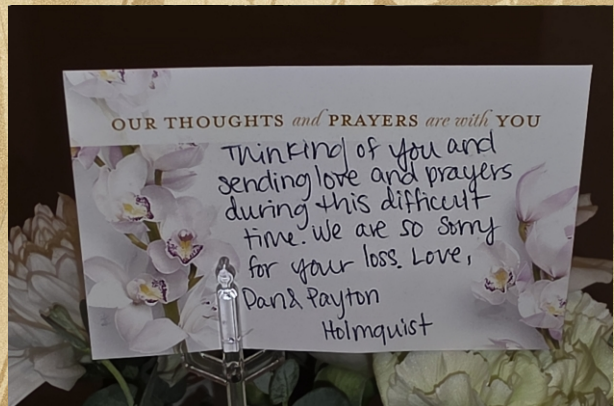 OUR THOUGHTS and PRAYERS are with YOU
Thinking of you and
sending love and prayers
during this difficult
time. We are so sorry
for your loss. Love,
Dan & Payton
Holmquist